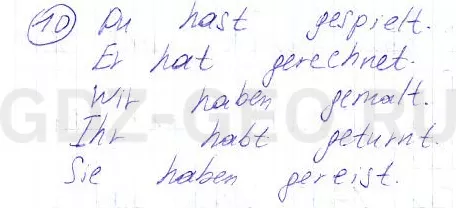 10 Du hast gespielt.
Er hat gerechnet.
Wir haben gemalt.
Ihr habt geturnt.
Sie haben gereist.